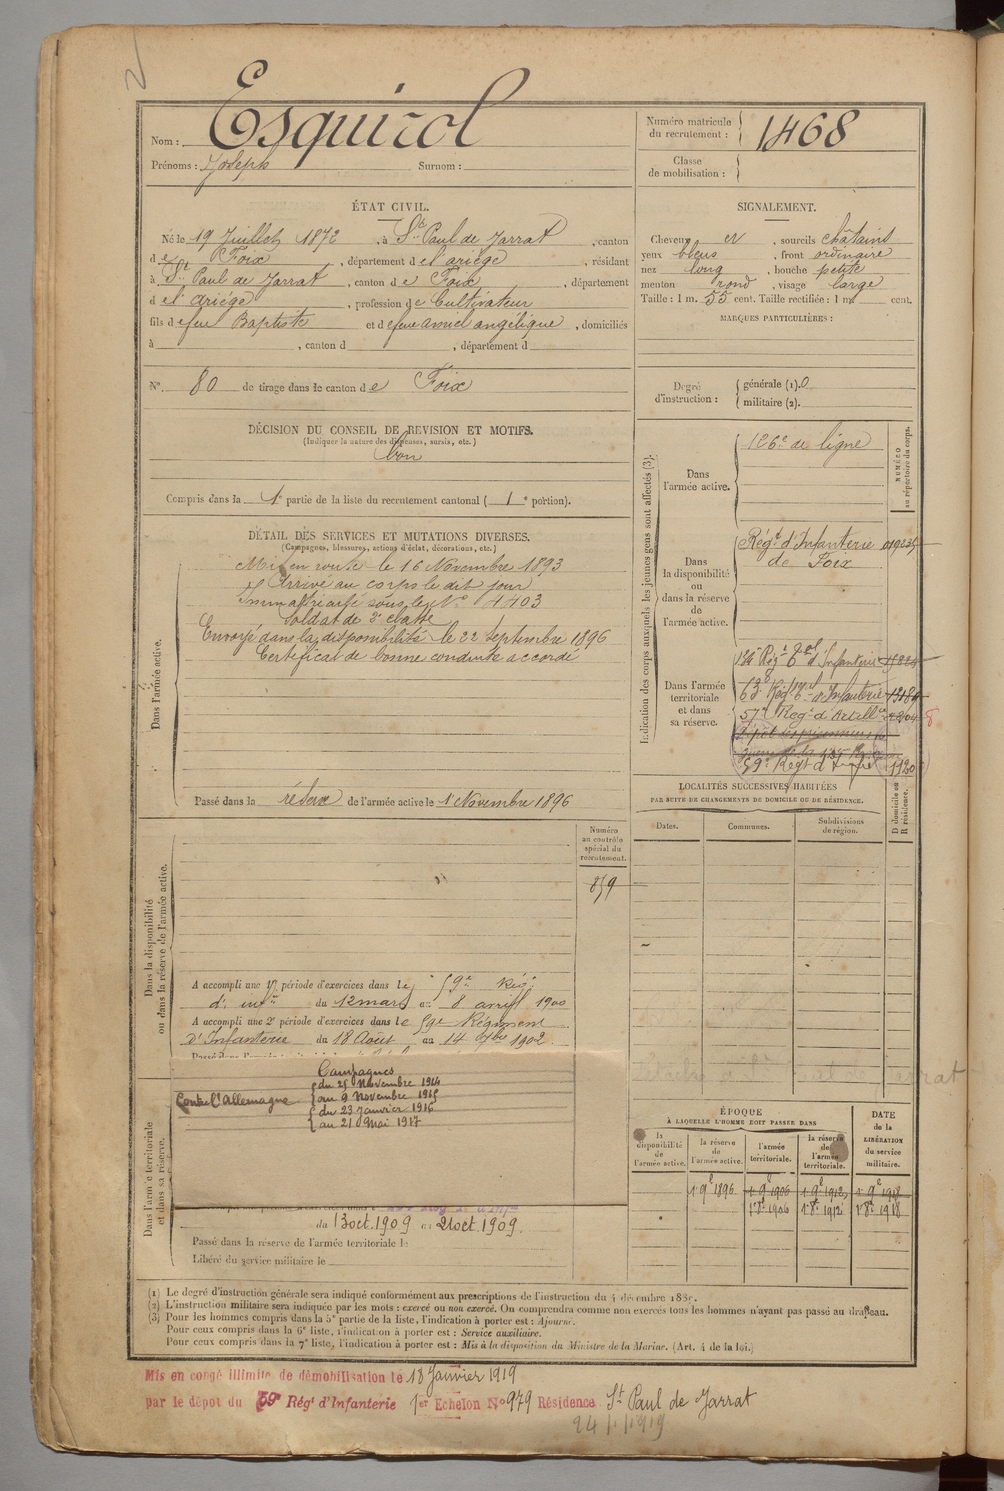 Esquirol
Nom :
Prénoms : Joseph Surnom :
Numéro matricule
du recrutement : 1468
Classe
de mobilisation :
ÉTAT CIVIL.
Né le 19 Juillet 1872, à St Paul de Jarrat, canton
de Foix, département de l'ariège, résidant
à St Paul de Jarrat, canton de Foix, département
de l'ariège, profession de Cultivateur
fils de feu Baptiste et de feue amiel angélique, domiciliés
à , canton d , département d
N° 80 de tirage dans le canton de Foix
SIGNALEMENT.
Cheveux et , sourcils châtains
yeux bleus , front ordinaire
nez long , bouche petite
menton rond , visage large
Taille : 1 m. 55 cent. Taille rectifiée : 1 m. cent.
MARQUES PARTICULIÈRES :
Degré
d'instruction :
générale (1). 0
militaire (2).
DÉCISION DU CONSEIL DE REVISION ET MOTIFS.
(Indiquer la nature des dispenses, sursis, etc.)
bon
Compris dans la 1e partie de la liste du recrutement cantonal ( 1 e portion).
DÉTAIL DES SERVICES ET MUTATIONS DIVERSES.
(Campagnes, blessures, actions d'éclat, décorations, etc.)
Dans l'armée active.
Mis en route le 16 Novembre 1893
Arrivé au corps le dit jour
Immatriculé sous le N° 4403
Soldat de 2e classe
Envoyé dans la disponibilité le 22 septembre 1896
Certificat de bonne conduite accordé
Passé dans la réserve de l'armée active le 1 Novembre 1896
Indication des corps auxquels les jeunes gens sont affectés (3).
NUMÉRO
au répertoire du corps.
Dans
l'armée active.
126e de ligne
Dans
la disponibilité
ou
dans la réserve
de
l'armée active.
Régt d'Infanterie
de Foix
Dans l'armée
territoriale
et dans
sa réserve.
134e Régt tal d'Infanterie
63e Régt tal d'Infanterie
57e Régt d'Artill
59e Régt d'Infie 1120
LOCALITÉS SUCCESSIVES HABITÉES
PAR SUITE DE CHANGEMENTS DE DOMICILE OU DE RÉSIDENCE.
Dates.
Communes.
Subdivisions
de région.
D domicile ou
R résidence.
Dans la disponibilité
ou dans la réserve de l'armée active.
Numéro
au contrôle
spécial du
recrutement.
859
A accompli une 1re période d'exercices dans le 59e Rég.
d'infie du 12 mars au 8 avril 1900
A accompli une 2e période d'exercices dans le 59e Régiment
D'Infanterie du 18 Août au 14 7bre 1902
Campagnes
Contre l'Allemagne
du 25 Novembre 1914
au 9 Novembre 1915
du 23 Janvier 1916
au 21 Mai 1917
Dans l'armée territoriale
et dans sa réserve.
du 13 oct. 1909 au 21 oct. 1909.
Passé dans la réserve de l'armée territoriale le
Libéré du service militaire le
ÉPOQUE
À LAQUELLE L'HOMME DOIT PASSER DANS
DATE
de la
LIBÉRATION
du service
militaire.
la
disponibilité
de
l'armée active.
la réserve
de
l'armée active.
l'armée
territoriale.
la réserve
de
l'armée
territoriale.
1r 9e 1896 1r 9e 1906 1r 9e 1912 1r 9e 1918
1r 8e 1906 1r 8e 1912 1r 8e 1918
(1) Le degré d'instruction générale sera indiqué conformément aux prescriptions de l'instruction du 4 décembre 1889.
(2) L'instruction militaire sera indiquée par les mots : exercé ou non exercé. On comprendra comme non exercés tous les hommes n'ayant pas passé au drapeau.
(3) Pour les hommes compris dans la 5e partie de la liste, l'indication à porter est : Ajourné.
Pour ceux compris dans la 6e liste, l'indication à porter est : Service auxiliaire.
Pour ceux compris dans la 7e liste, l'indication à porter est : Mis à la disposition du Ministre de la Marine. (Art. 4 de la loi.)
Mis en congé illimité de démobilisation le 18 Janvier 1919
par le dépôt du 59e Régt d'Infanterie 1er Echelon N° 979 Résidence St Paul de Jarrat
24/1/1919